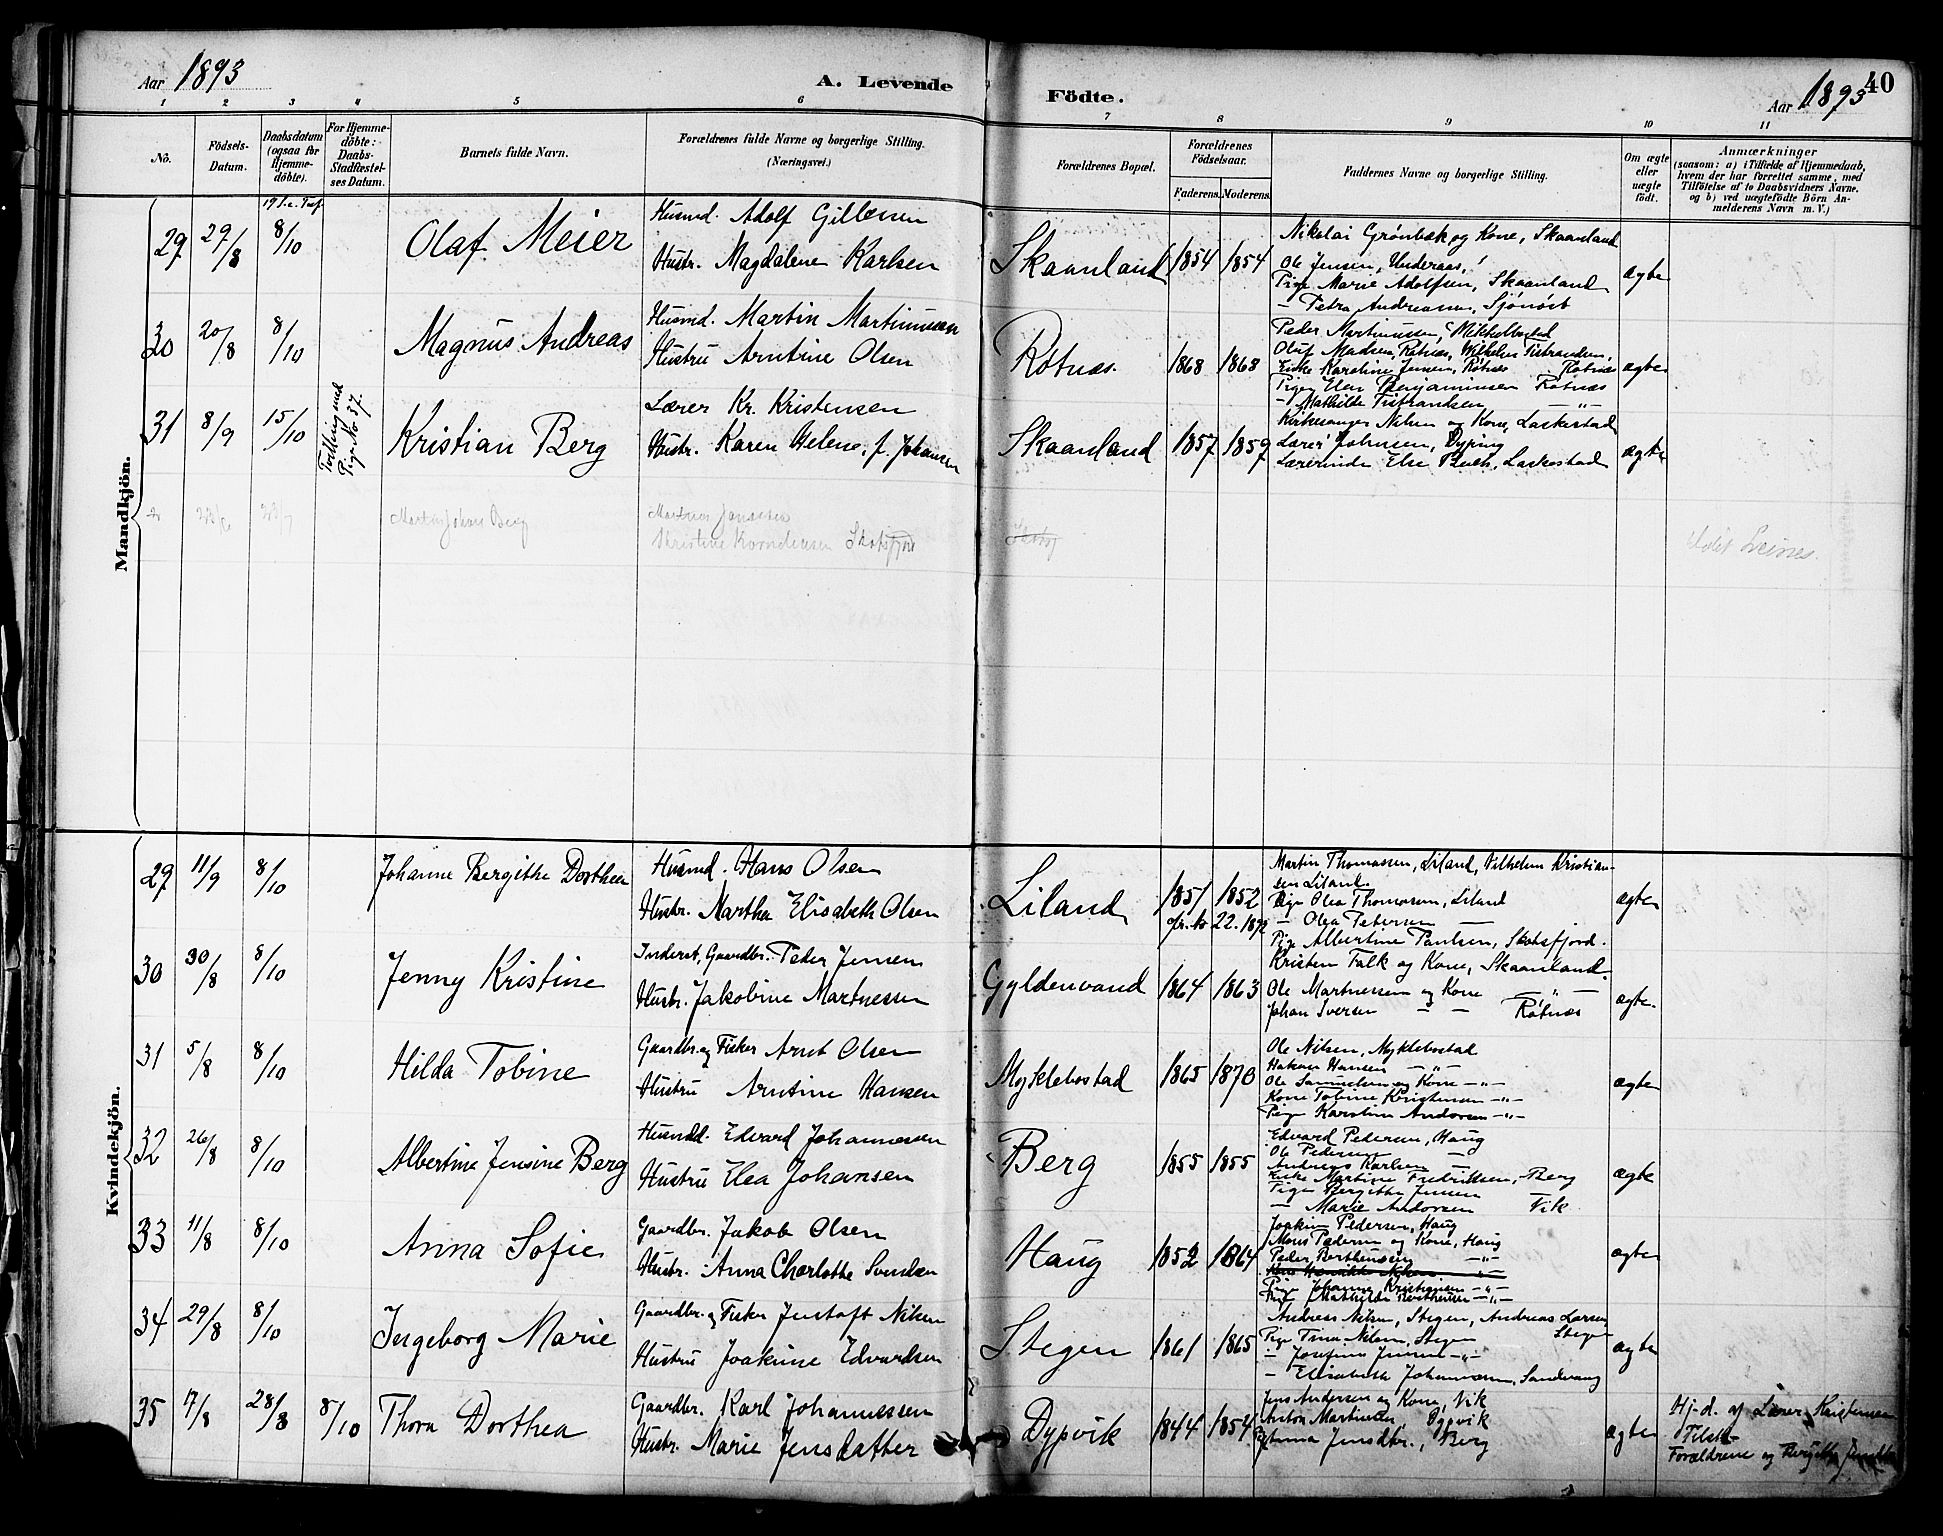 Aar 1893
A. Levende
Födte.
Aar 1893
40
1 2 3 4 5 6 7 8 9 10 11
No.
Födsels-
Datum.
Daabsdatum
(ogsaa for
Hjemme-
döbte).
For Hjemme-
döbte:
Daabs-
Stadfæstel-
ses Datum.
Barnets fulde Navn.
Forældrenes fulde Navne og borgerlige Stilling.
(Næringsvei.)
Forældrenes Bopæl.
Forældrenes
Födselsaar.
Faderens. Moderens.
Faddernes Navne og borgerlige Stilling.
Om ægte
eller
uægte
födt.
Anmærkninger
(saasom: a) i Tilfælde af Hjemmedaab,
hvem der har forrettet samme, med
Tilföielse af to Daabsvidners Navne,
og b) ved uægtefödte Börn An-
melderens Navn m. V.)
Mandkjön.
29 29/8 8/10 Olaf Meier
Husmd. Adolf Gillesen
Hustr. Magdalene Karlsen
Skaanland 1854 1854
Nikolai Grønbæk og Kone, Skaanland
Ole Jensen, Underaas,
Pige Marie Adolfsen, Skaanland
— Petra Andreasen,
ægte
30 20/8 8/10 Magnus Andreas
Husmd. Martin Martinussen
Hustru Arntine Olsen
Røtnæs. 1868 1868
Peder Martinussen,
Oluf Madsen, Røtnæs, Wilhelm
Enke Karoline Jensen, Røtnæs Røtnæs
Piger Elen Benjaminsen Røtnæs
— Mathilde —"—
ægte
31 8/9 15/10
Tvilling med
Pige No 37.
Kristian Berg
Lærer Kr. Kristensen
Hustr. Karen Helene, f. Johansen
Skaanland 1857 1859
Kirkesanger Nilsen og Kone, Laskestad
Lærer Johnsen, Dyping
Lærerinde Else Buch, Laskestad
ægte
Johan Berg
Leines.
Kvindekjön.
29 11/9 8/10 Johanne Bergithe Dorthea
Husmd. Hans Olsen
Hustr. Martha Elisabeth Olsen
Liland 1851 1852
Martin Thomassen, Liland, Vilhelm Kristian-
sen Liland.
Pige Olea Thomasen, Liland
— Olea Petersen —
Pige Albertine Paulsen, Skotsfjord.
ægte
30 30/8 8/10 Jenny Kristine
Inderst, Gaardbr. Peder Jensen
Hustr. Jakobine Martinessen
Gyldenvand 1864 1863
Kristen Falk og Kone, Skaanland.
Ole Martinessen og Kone —"—
Johan Iversen — — Røtnæs
ægte.
31 5/8 8/10 Hilda Tobine
Gaardbr. og Fisker Arnt Olsen
Hustru Arntine Hansen
Myklebostad 1865 1870
Ole Nilsen, Myklebostad
Hakon Hansen —"—
Ole Samuelsen og Kone —"—
Kone Tobine Kristensen —"—
Pige Karoline Andersen —"—
ægte
32 26/8 8/10 Albertine Jensine Berg
Husmd. Edvard Johannessen
Hustru Elea Johansen
Berg 1855 1855
Edvard Pedersen, Haug
Ole Pedersen —
Andreas Karlsen —
Enke Martine Fredriksen, Berg
Pige Bergitte Jensen
— Marie Andorsen Vik
ægte
33 11/8 8/10 Anna Sofie
Gaardbr. Jakob Olsen
Hustr. Anna Charlotte Svendsen
Haug 1852 1864
Joakim Pedersen, Haug
Mons Pedersen og Kone, Haug
Peder Bertheussen —"—
Pige Johanna Kristiansen —"—
Pige Mathilde —"—
ægte
34 29/8 8/10 Ingeborg Marie
Gaardbr. og Fisker Justaft Nilsen
Hustru Joakine Edvardsen
Stegen 1861 1865
Andreas Nilsen, Stegen, Andreas Larsen
Pige Tina Nilsen, Stegen Stegen
— Josefine Jensen —"—
— Elisabeth Johannesen, Sandvaag
ægte
35 17/8 28/8 8/10 Thora Dorthea
Gaardbr. Karl Johannessen
Hustr. Marie Jensdatter
Dypvik 1844 1854
Jens Andersen og Kone, Vik
Anton Martinsen, Dypvik
Anna Jensdtr., Berg
ægte
Hj-d. af Lærer Kristensen
Tilst.
Forældrene og Bergitte